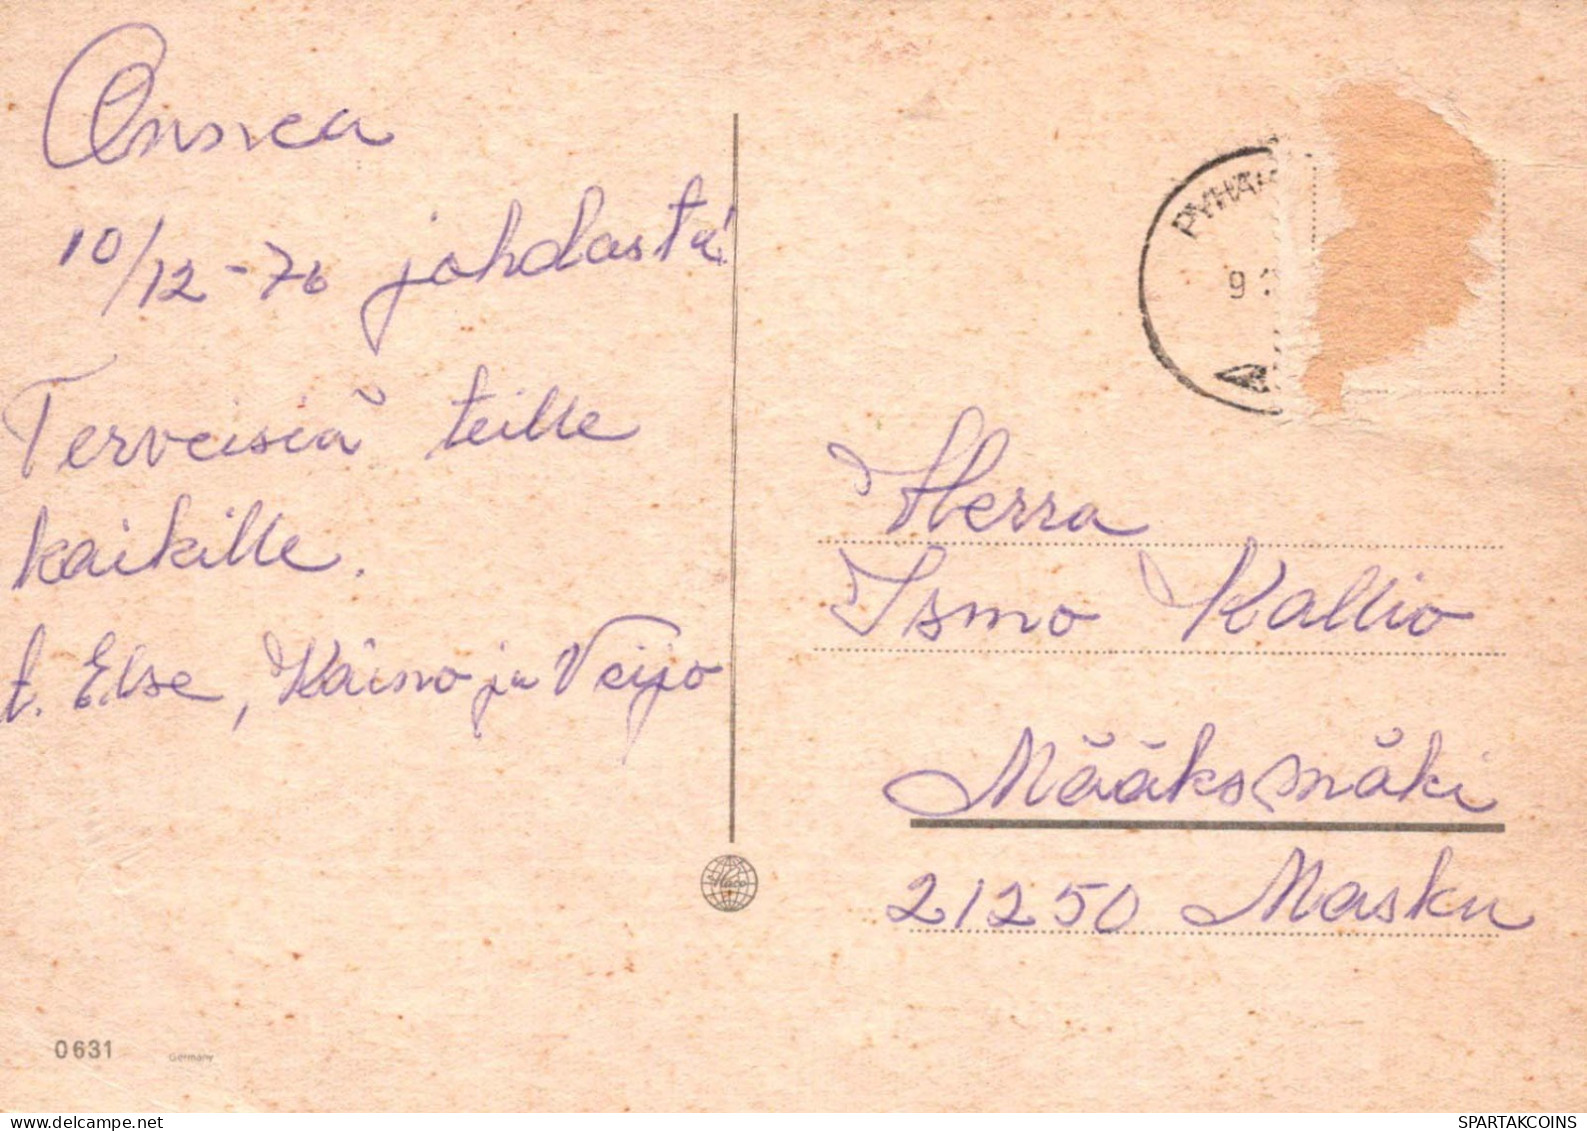 Onnea
10/12-76 johdosta
Terveisiä teille
kaikille.
t. Else, Kaino ja Veijo
PYHÄ
9
Herra
Ismo Kallio
Määksmäki
21250 Masku
0631
Germany
SPARTAKCOINS